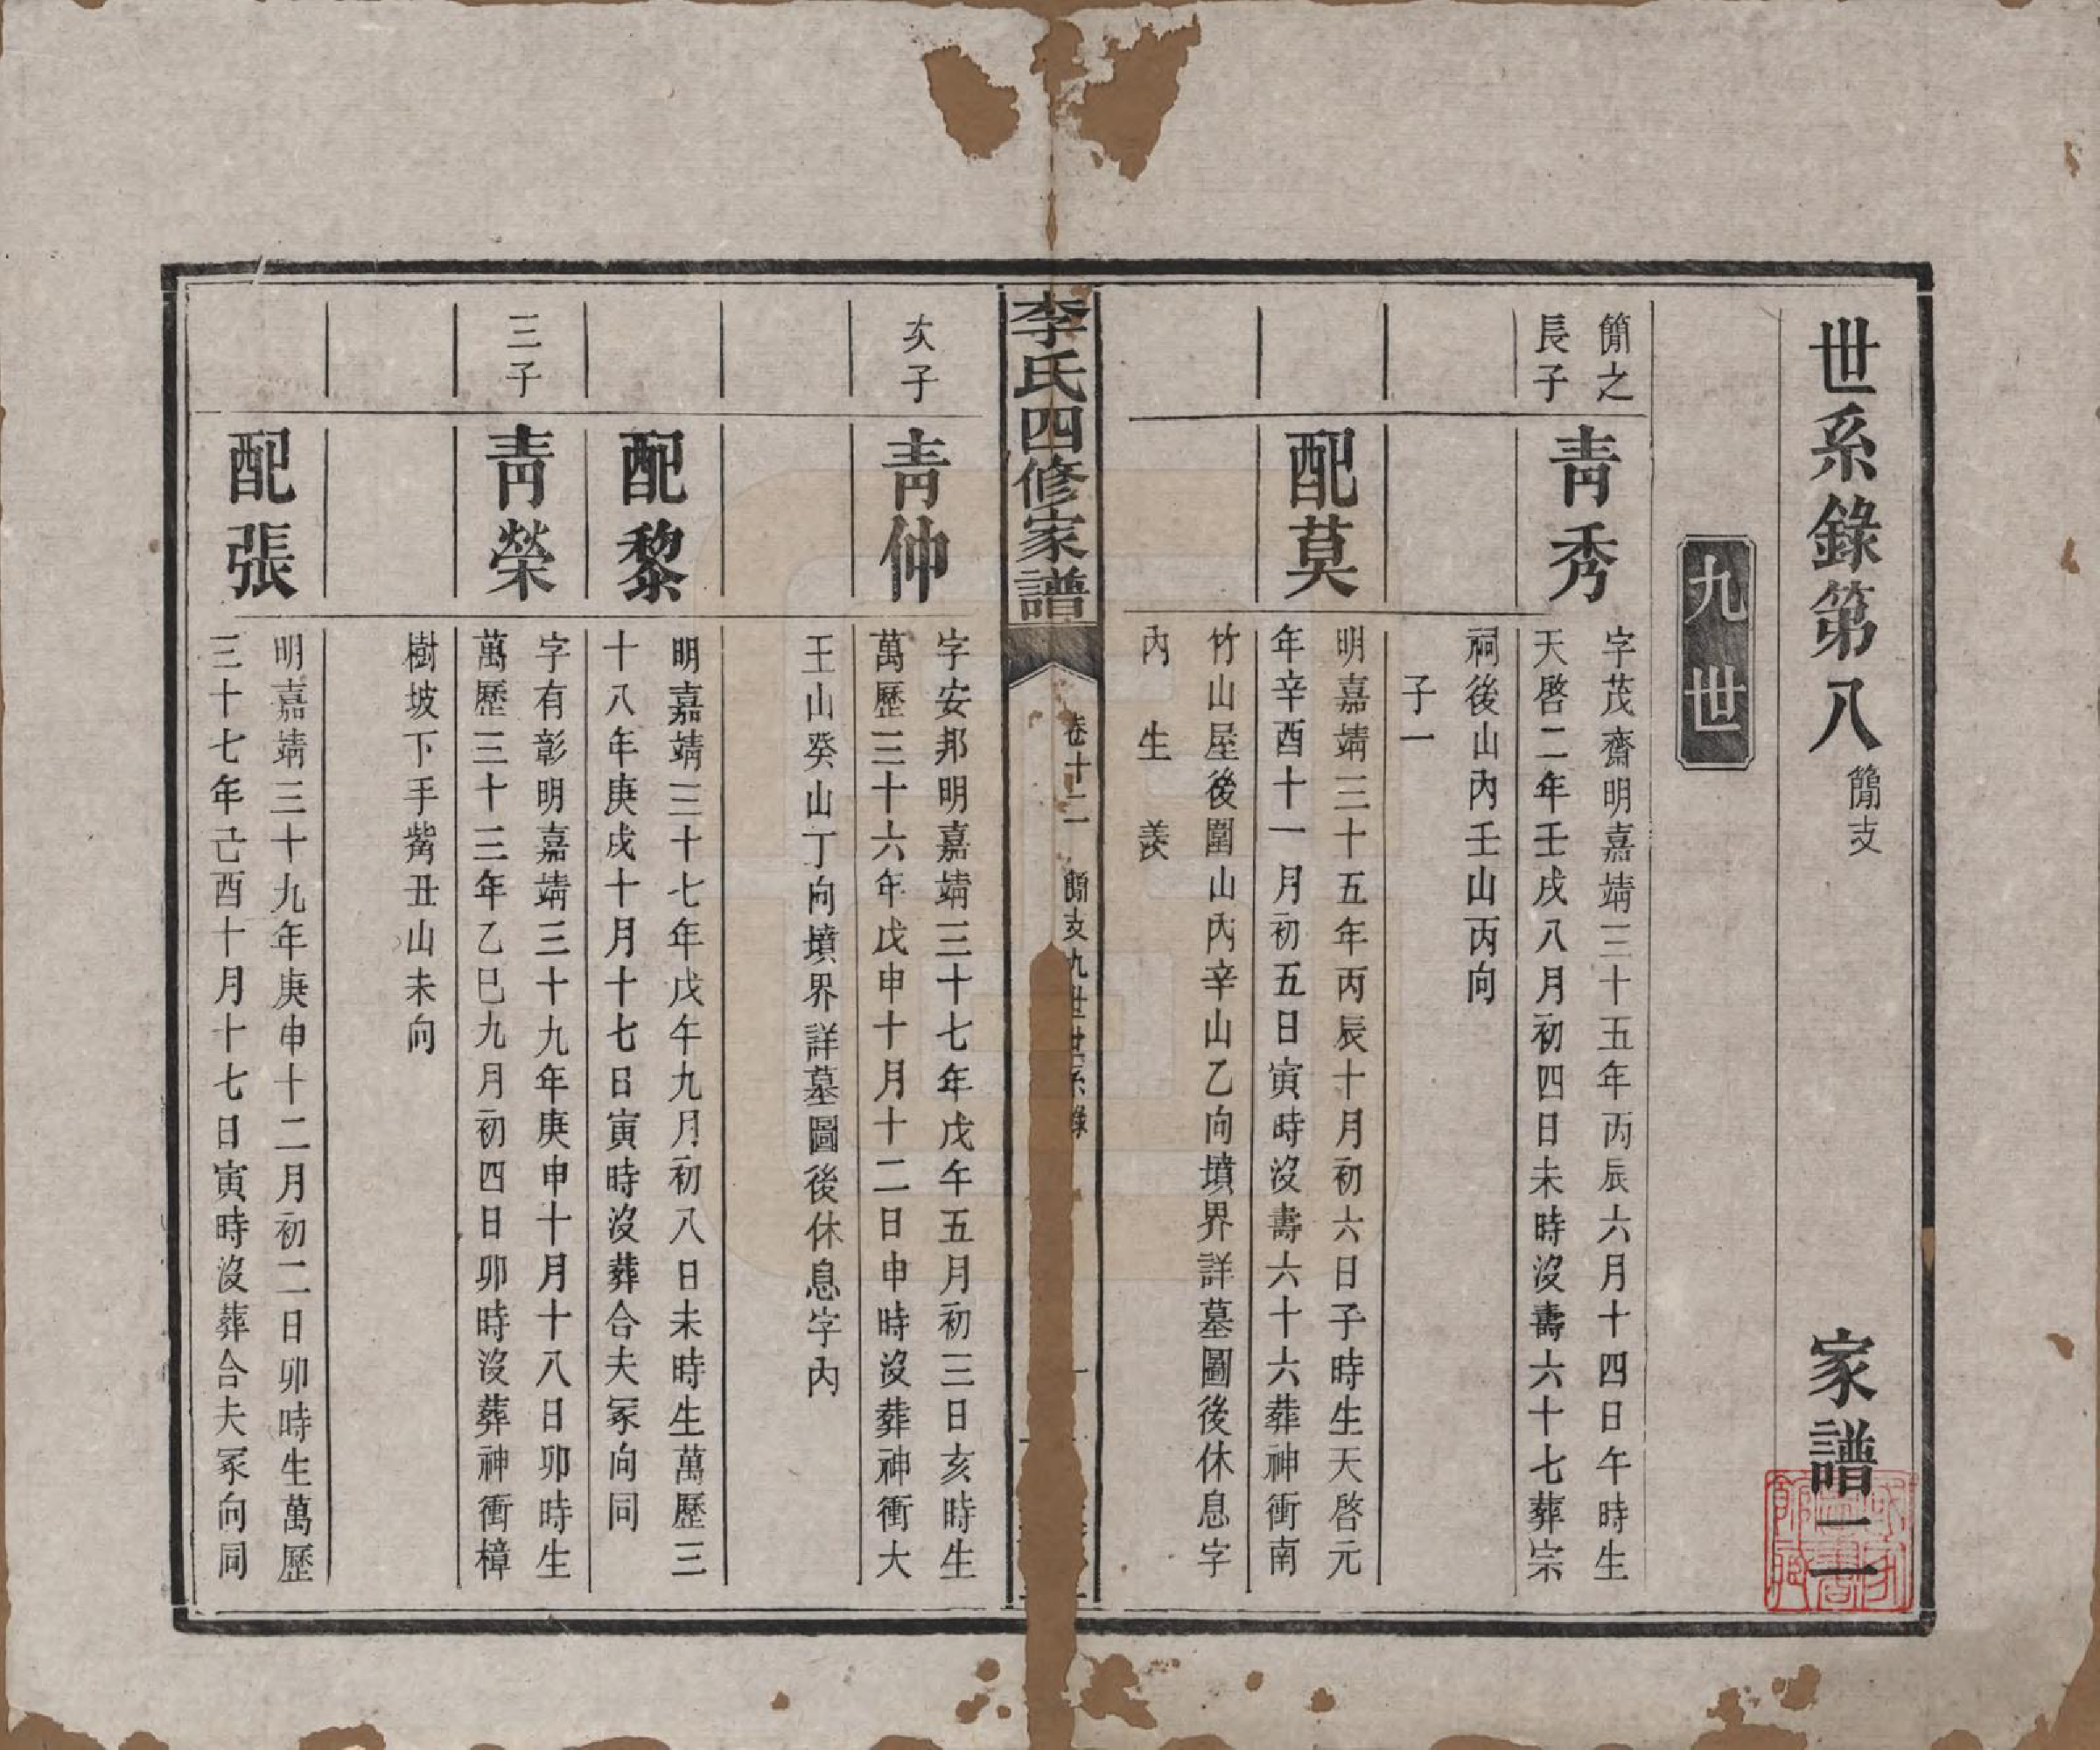 世系錄第八 簡支 家譜一二
九世
簡之
長子
青秀
字茂齋明嘉靖三十五年丙辰六月十四日午時生
天啓二年壬戌八月初四日未時沒壽六十七葬宗
祠後山內壬山丙向
子一
配莫
明嘉靖三十五年丙辰十月初六日子時生天啓元
年辛酉十一月初五日寅時沒壽六十六葬神衝南
竹山屋後圍山內辛山乙向墳界詳墓圖後休息字
內 生 羨
李氏四修家譜 卷十二 簡支九世世系錄
次子
青仲
字安邦明嘉靖三十七年戊午五月初三日亥時生
萬歷三十六年戊申十月十二日申時沒葬神衝大
王山癸山丁向墳界詳墓圖後休息字內
配黎
明嘉靖三十七年戊午九月初八日未時生萬歷三
十八年庚戌十月十七日寅時沒葬合夫冢向同
三子
青榮
字有彰明嘉靖三十九年庚申十月十八日卯時生
萬歷三十三年乙巳九月初四日卯時沒葬神衝樟
樹坡下手觜丑山未向
配張
明嘉靖三十九年庚申十二月初二日卯時生萬歷
三十七年己酉十月十七日寅時沒葬合夫冢向同